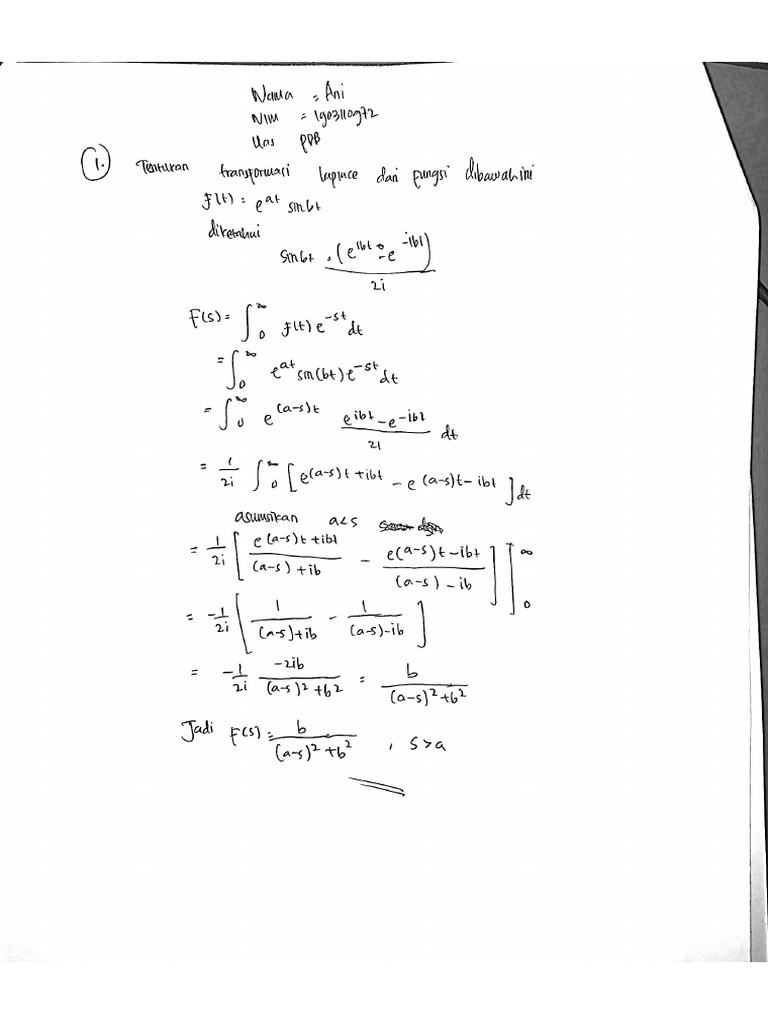 Nama = Ani
NIM = 1903110972
Uas PDB
1. Tentukan transformasi laplace dari fungsi dibawah ini
f(t) = e^{at} sin bt
diketahui
sin bt = (e^{ibt} - e^{-ibt}) / 2i
F(s) = ∫_0^∞ f(t) e^{-st} dt
= ∫_0^∞ e^{at} sin(bt) e^{-st} dt
= ∫_0^∞ e^{(a-s)t} (e^{ibt} - e^{-ibt}) / 2i dt
= 1/2i ∫_0^∞ [e^{(a-s)t + ibt} - e^{(a-s)t - ibt}] dt
asumsikan a < s
= 1/2i [e^{(a-s)t + ibt} / ((a-s) + ib) - e^{(a-s)t - ibt} / ((a-s) - ib)]]_0^∞
= -1/2i [1 / ((a-s) + ib) - 1 / ((a-s) - ib)]
= -1/2i (-2ib) / ((a-s)^2 + b^2) = b / ((a-s)^2 + b^2)
Jadi F(s) = b / ((a-s)^2 + b^2) , s > a